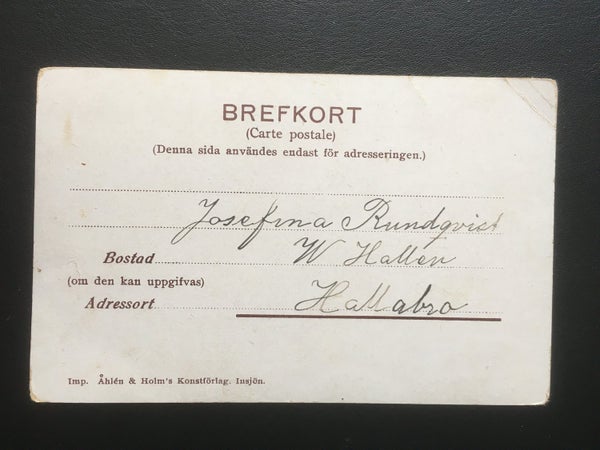 BREFKORT
(Carte postale)
(Denna sida användes endast för adresseringen.)
Josefina Rundqvist
Bostad W Hallen
(om den kan uppgifvas)
Adressort Hallabro
Imp. Åhlén & Holm's Konstförlag. Insjön.